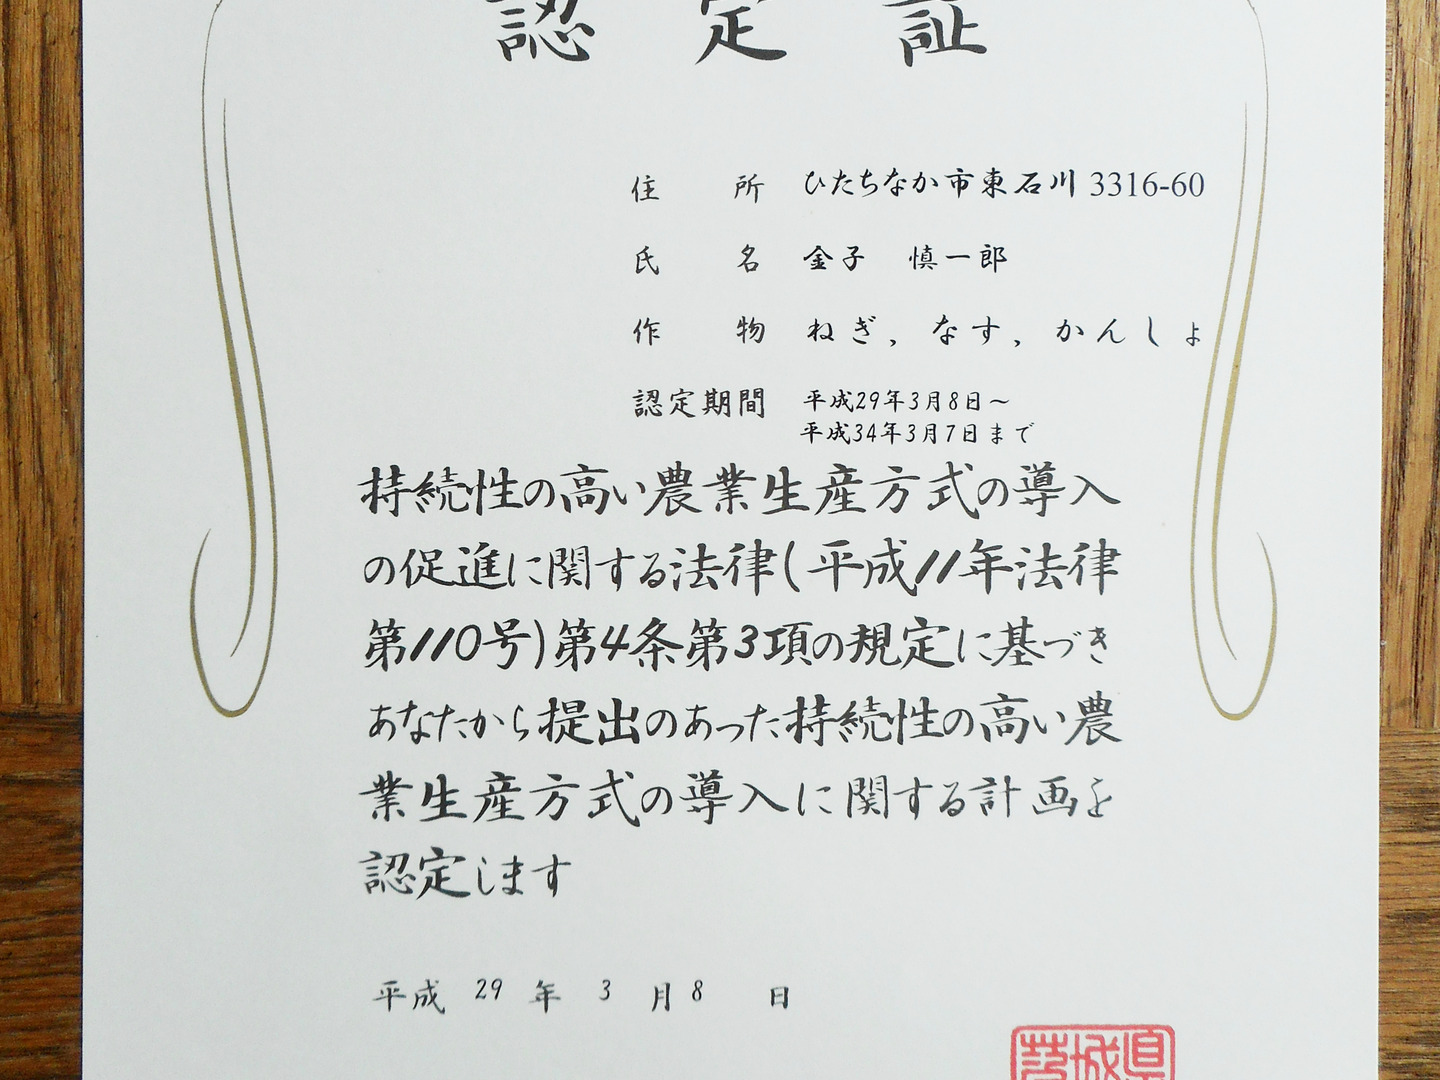 認定証
住所 ひたちなか市東石川 3316-60
氏名 金子 慎一郎
作物 ねぎ，なす，かんしょ
認定期間 平成29年3月8日～
平成34年3月7日まで
持続性の高い農業生産方式の導入
の促進に関する法律(平成11年法律
第110号)第4条第3項の規定に基づき
あなたから提出のあった持続性の高い農
業生産方式の導入に関する計画を
認定します
平成 29 年 3 月 8 日
茨城県